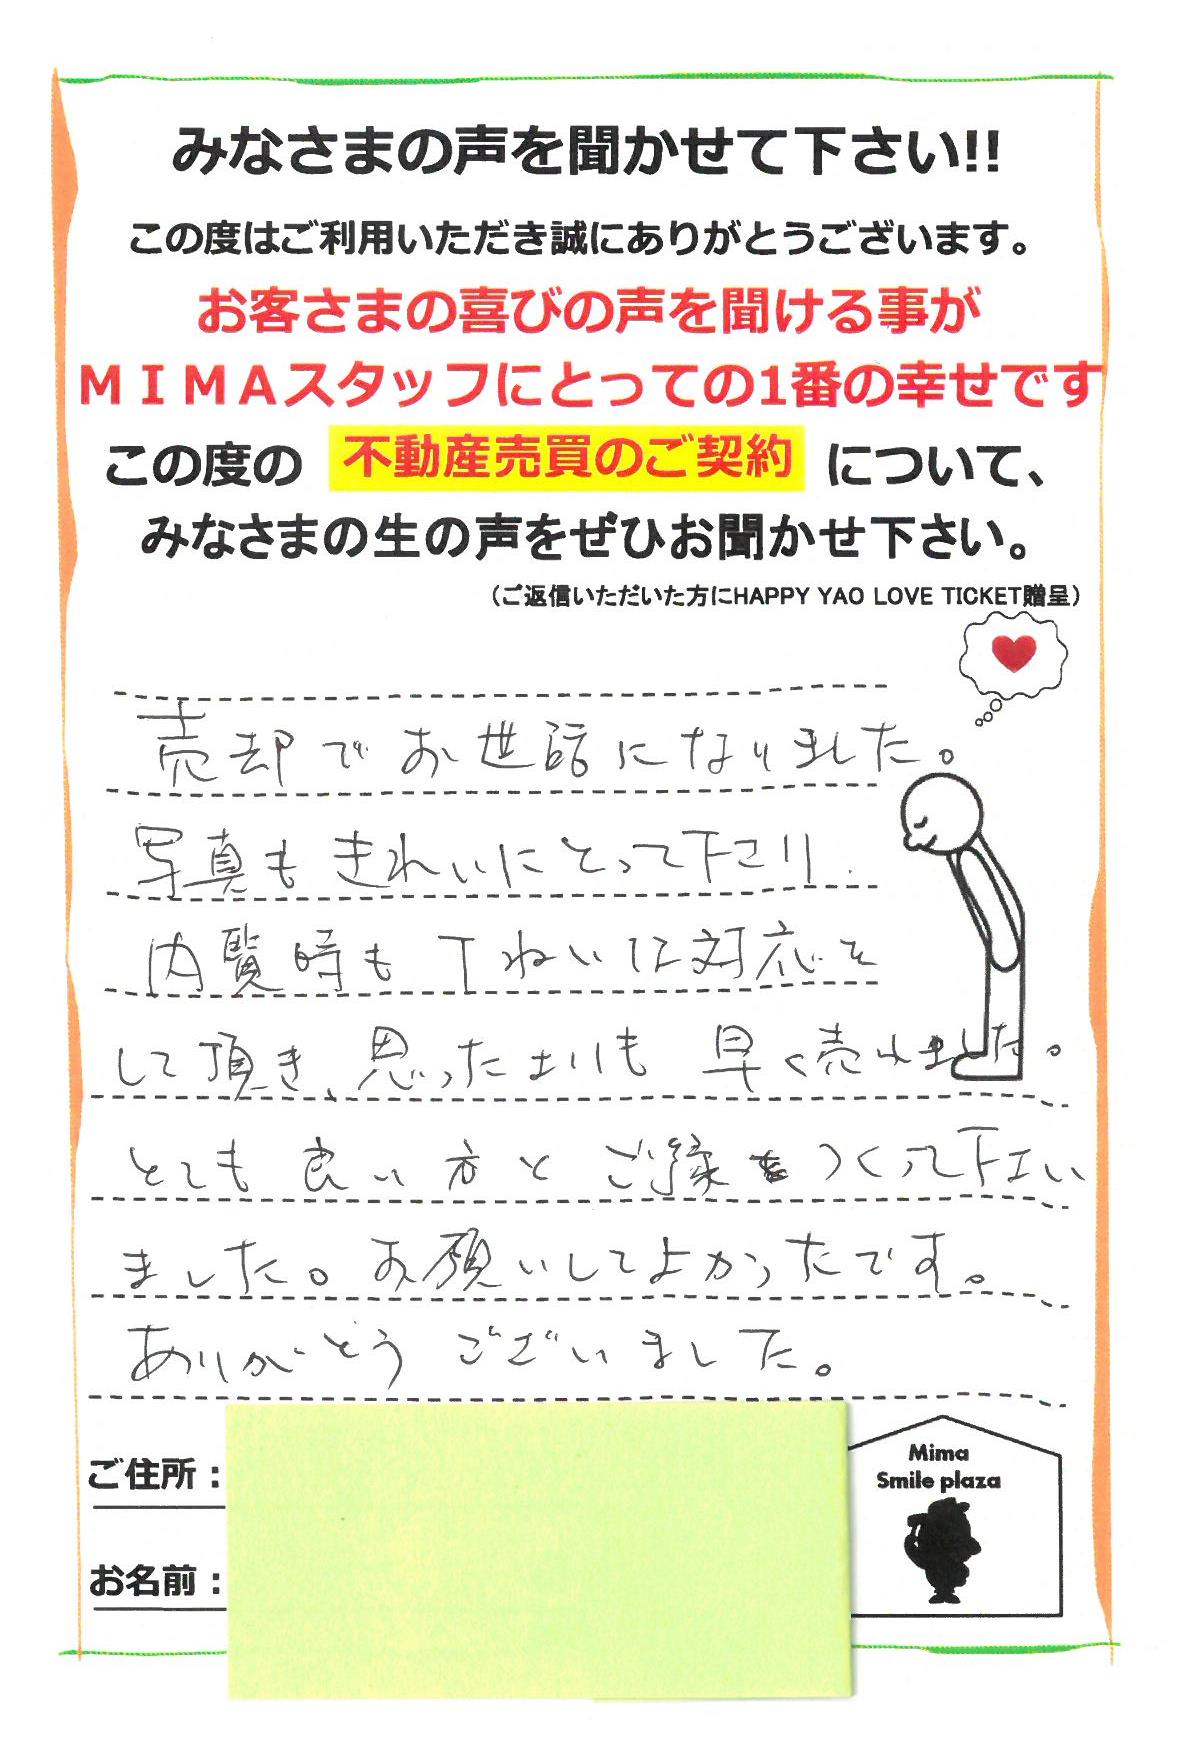 みなさまの声を聞かせて下さい!!
この度はご利用いただき誠にありがとうございます。
お客さまの喜びの声を聞ける事が
ＭＩＭＡスタッフにとっての1番の幸せです
この度の 不動産売買のご契約 について、
みなさまの生の声をぜひお聞かせ下さい。
（ご返信いただいた方にHAPPY YAO LOVE TICKET贈呈）
売却でお世話になりました。
写真もきれいにとって下さり、
内覧時も丁ねいに対応を
して頂き、思ったよりも早く売れました。
とても良い方とご縁をつくって下さい
ました。お願いしてよかったです。
ありがとうございました。
ご住所：
お名前：
Mima
Smile plaza